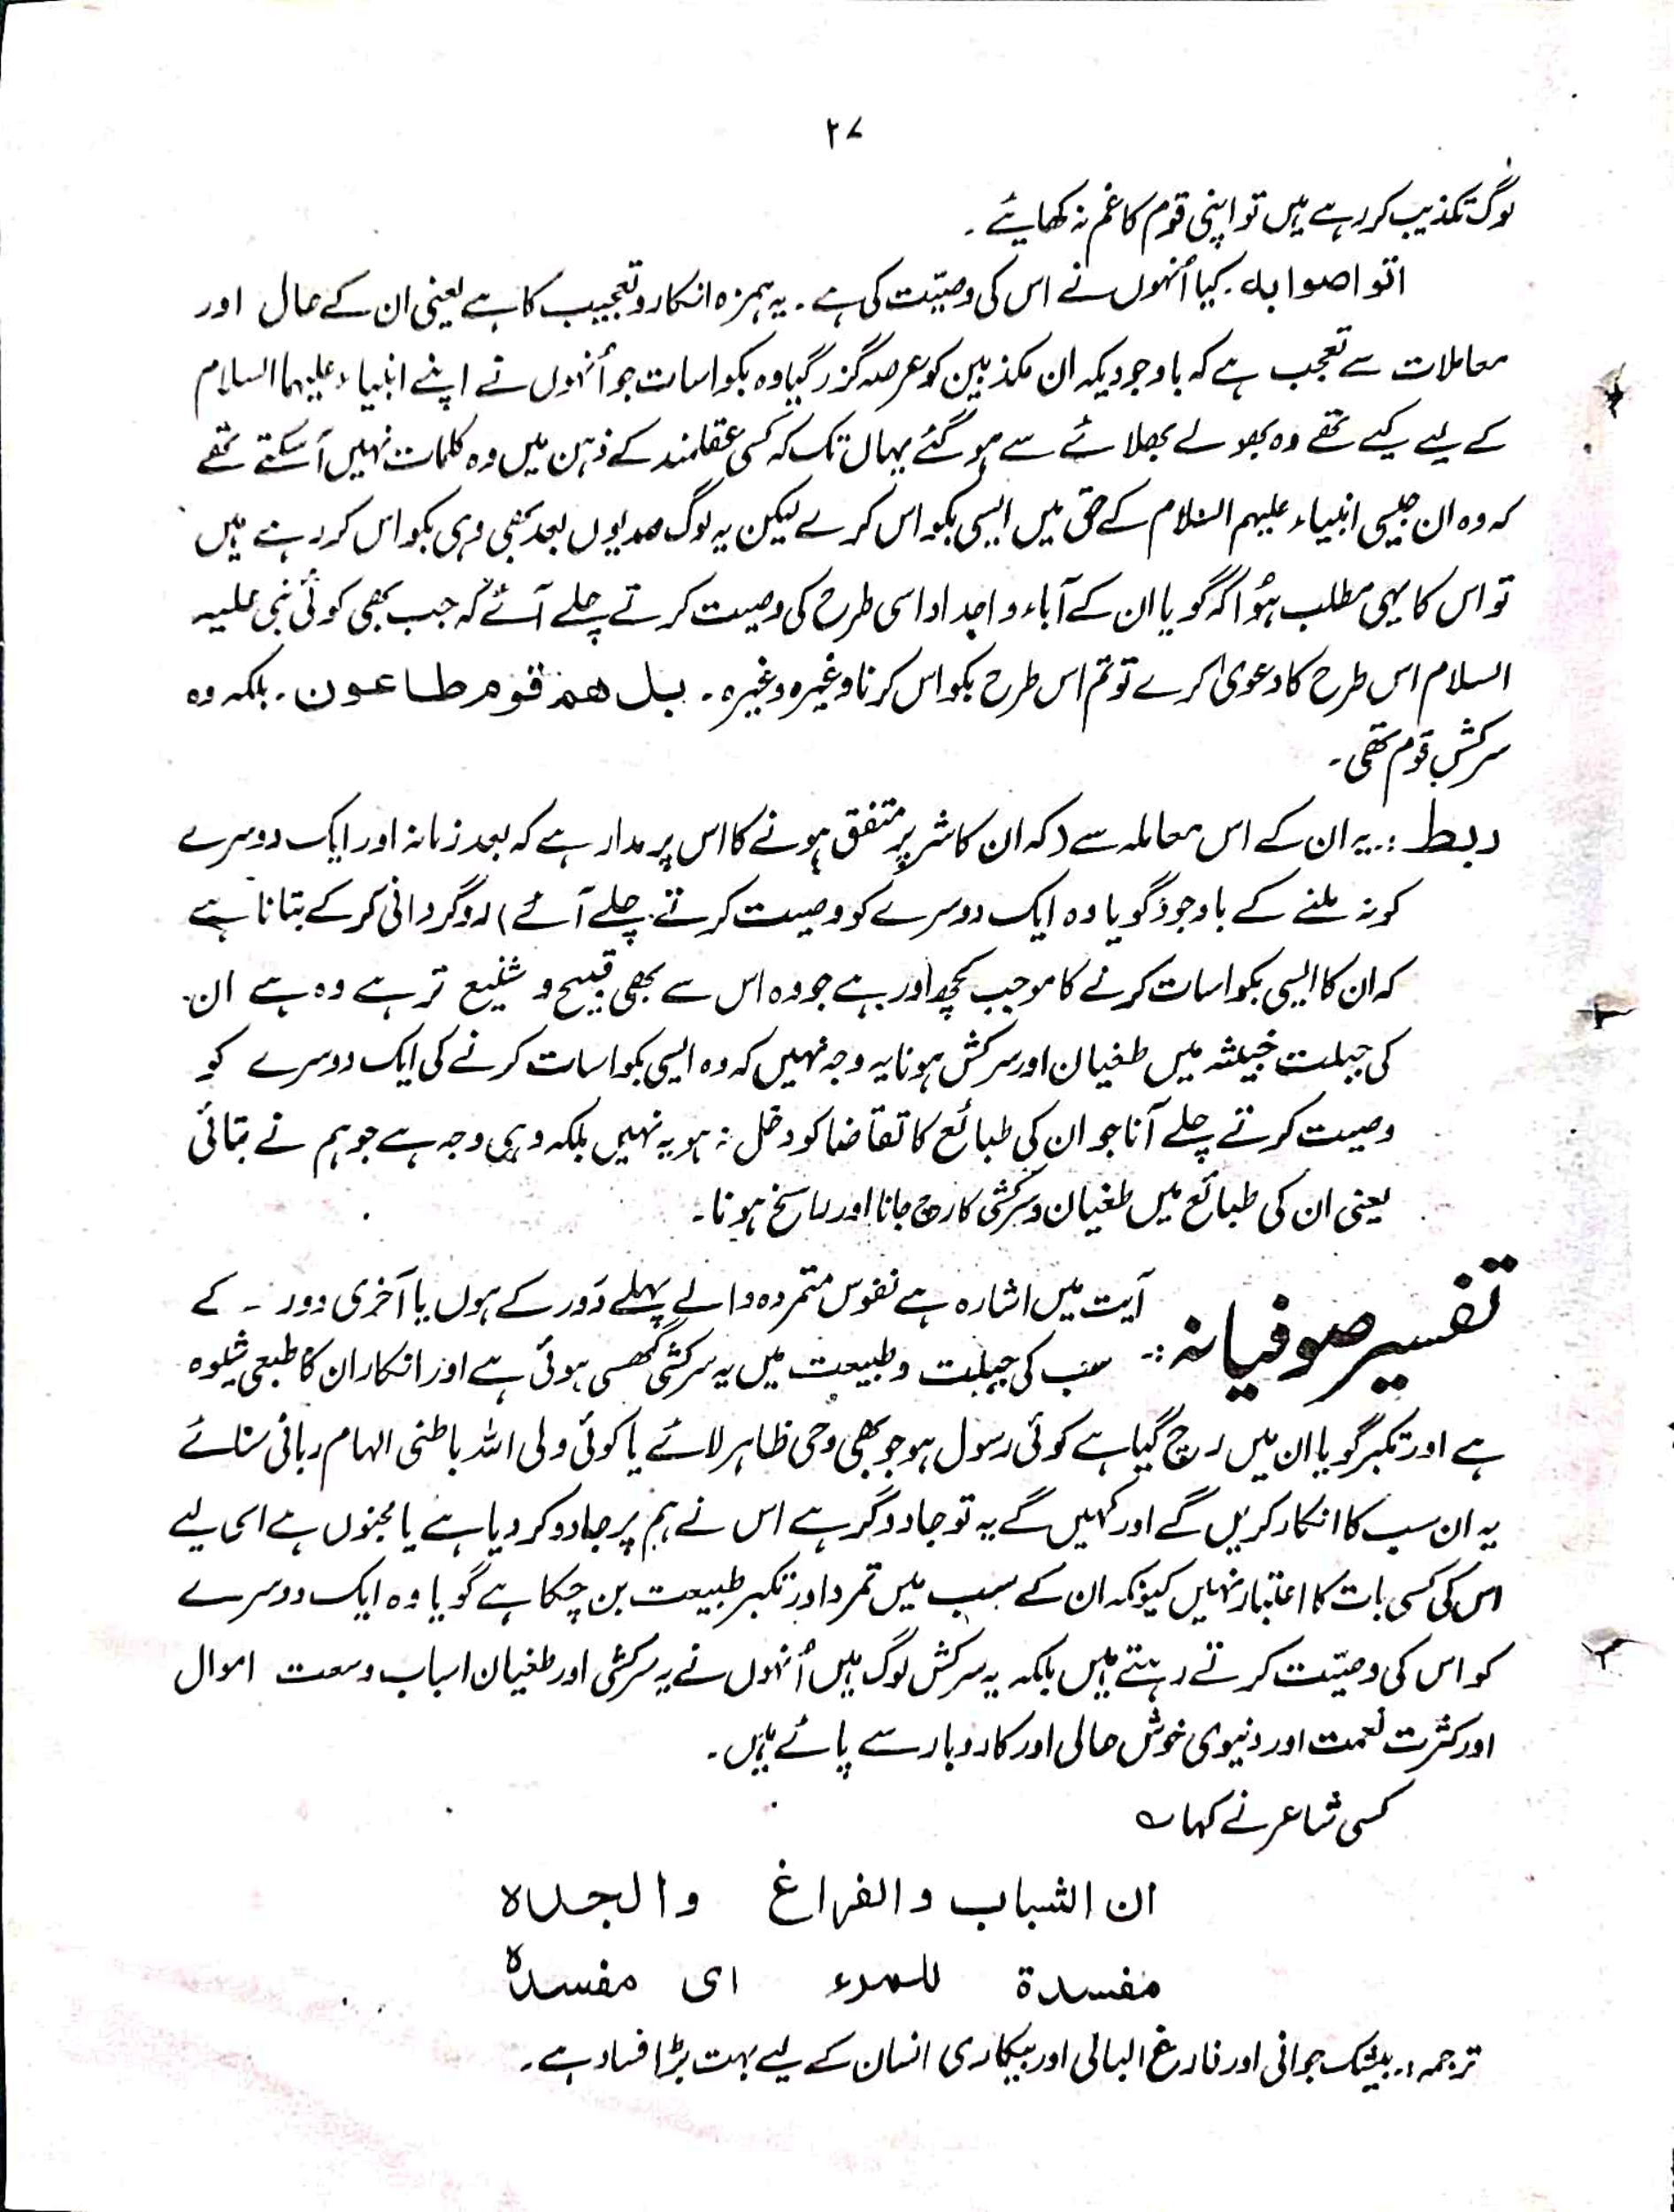 ۲۷
لوگ تکذیب کر رہے ہیں تو اپنی قوم کا غم نہ کھایئے ۔
اتواصوا بہ۔ کیا اُنہوں نے اس کی وصیّت کی ہے ۔ یہ ہمزہ انکار و تعجیب کا ہے یعنی ان کے حال اور
معاملات سے تعجب ہے کہ باوجودیکہ ان مکذبین کو عرصہ گزر گیا وہ بکواسات جو اُنہوں نے اپنے انبیاء علیہما السلام
کے لیے کیے تھے وہ بھولے بھلائے سے ہو گئے یہاں تک کہ کسی عقلمند کے ذہن میں وہ کلمات نہیں آ سکتے تھے
کہ وہ ان جیسی انبیاء علیہم السلام کے حق میں ایسی بکواس کرے لیکن یہ لوگ صدیوں بعد بھی وہی بکواس کر رہے ہیں
تو اس کا یہی مطلب ہوُا کہ گویا ان کے آباء و اجداد اسی طرح کی وصیت کرتے چلے آئے کہ جب بھی کوئی نبی علیہ
السلام اس طرح کا دعویٰ کرے تو تم اس طرح بکواس کرنا وغیرہ وغیرہ ۔ بل ھم قوم طاعون ۔ بلکہ وہ
سرکش قوم تھی ۔
ربط :۔ یہ ان کے اس معاملہ سے (کہ ان کا شر پر متفق ہونے کا اس پر مدار ہے کہ بعد زمانہ اور ایک دوسرے
کو نہ ملنے کے باوجود گویا وہ ایک دوسرے کو وصیت کرتے چلے آئے) روگردانی کر کے بتانا ہے
کہ ان کا ایسی بکواسات کرنے کا موجب کچھ اور ہے جو وہ اس سے بھی قبیح و شنیع تر ہے وہ ہے ان
کی جبلت خبیثہ میں طغیان اور سرکش ہونا یہ وجہ نہیں کہ وہ ایسی بکواسات کرنے کی ایک دوسرے کو
وصیت کرتے چلے آنا جو ان کی طبائع کا تقاضا کو دخل نہ ہو یہ نہیں بلکہ وہی وجہ ہے جو ہم نے بتائی
یعنی ان کی طبائع میں طغیان و سرکشی کا رچ جانا اور راسخ ہونا ۔
تفسیر صوفیانہ :۔ آیت میں اشارہ ہے نفوس متمردہ والے پہلے دَور کے ہوں یا آخری دور ۔ کے
سب کی جبلت و طبیعت میں یہ سرکشی گھسی ہوئی ہے اور انکار ان کا طبعی شیوہ
ہے اور تکبر گویا ان میں رچ گیا ہے کوئی رسول ہو جو بھی وحی ظاہر لائے یا کوئی ولی اللہ باطنی الہام ربانی سنائے
یہ ان سب کا انکار کریں گے اور کہیں گے یہ تو جادوگر ہے اس نے ہم پر جادو کر دیا ہے یا مجنوں ہے اسی لیے
اس کی کسی بات کا اعتبار نہیں کیونکہ ان کے سبب میں تمرد اور تکبر طبیعت بن چکا ہے گویا وہ ایک دوسرے
کو اس کی وصیّت کرتے رہتے ہیں بلکہ یہ سرکش لوگ ہیں اُنہوں نے یہ سرکشی اور طغیان اسباب وسعت اموال
اور کثرت نعمت اور دنیوی خوش حالی اور کاروبار سے پائے ہیں ۔
کسی شاعر نے کہا ؎
ان الشباب والفراغ والجدہ
مفسدۃ للمرء ای مفسدۃ
ترجمہ :۔ بیشک جوانی اور فارغ البالی اور بیکاری انسان کے لیے بہت بڑا فساد ہے ۔